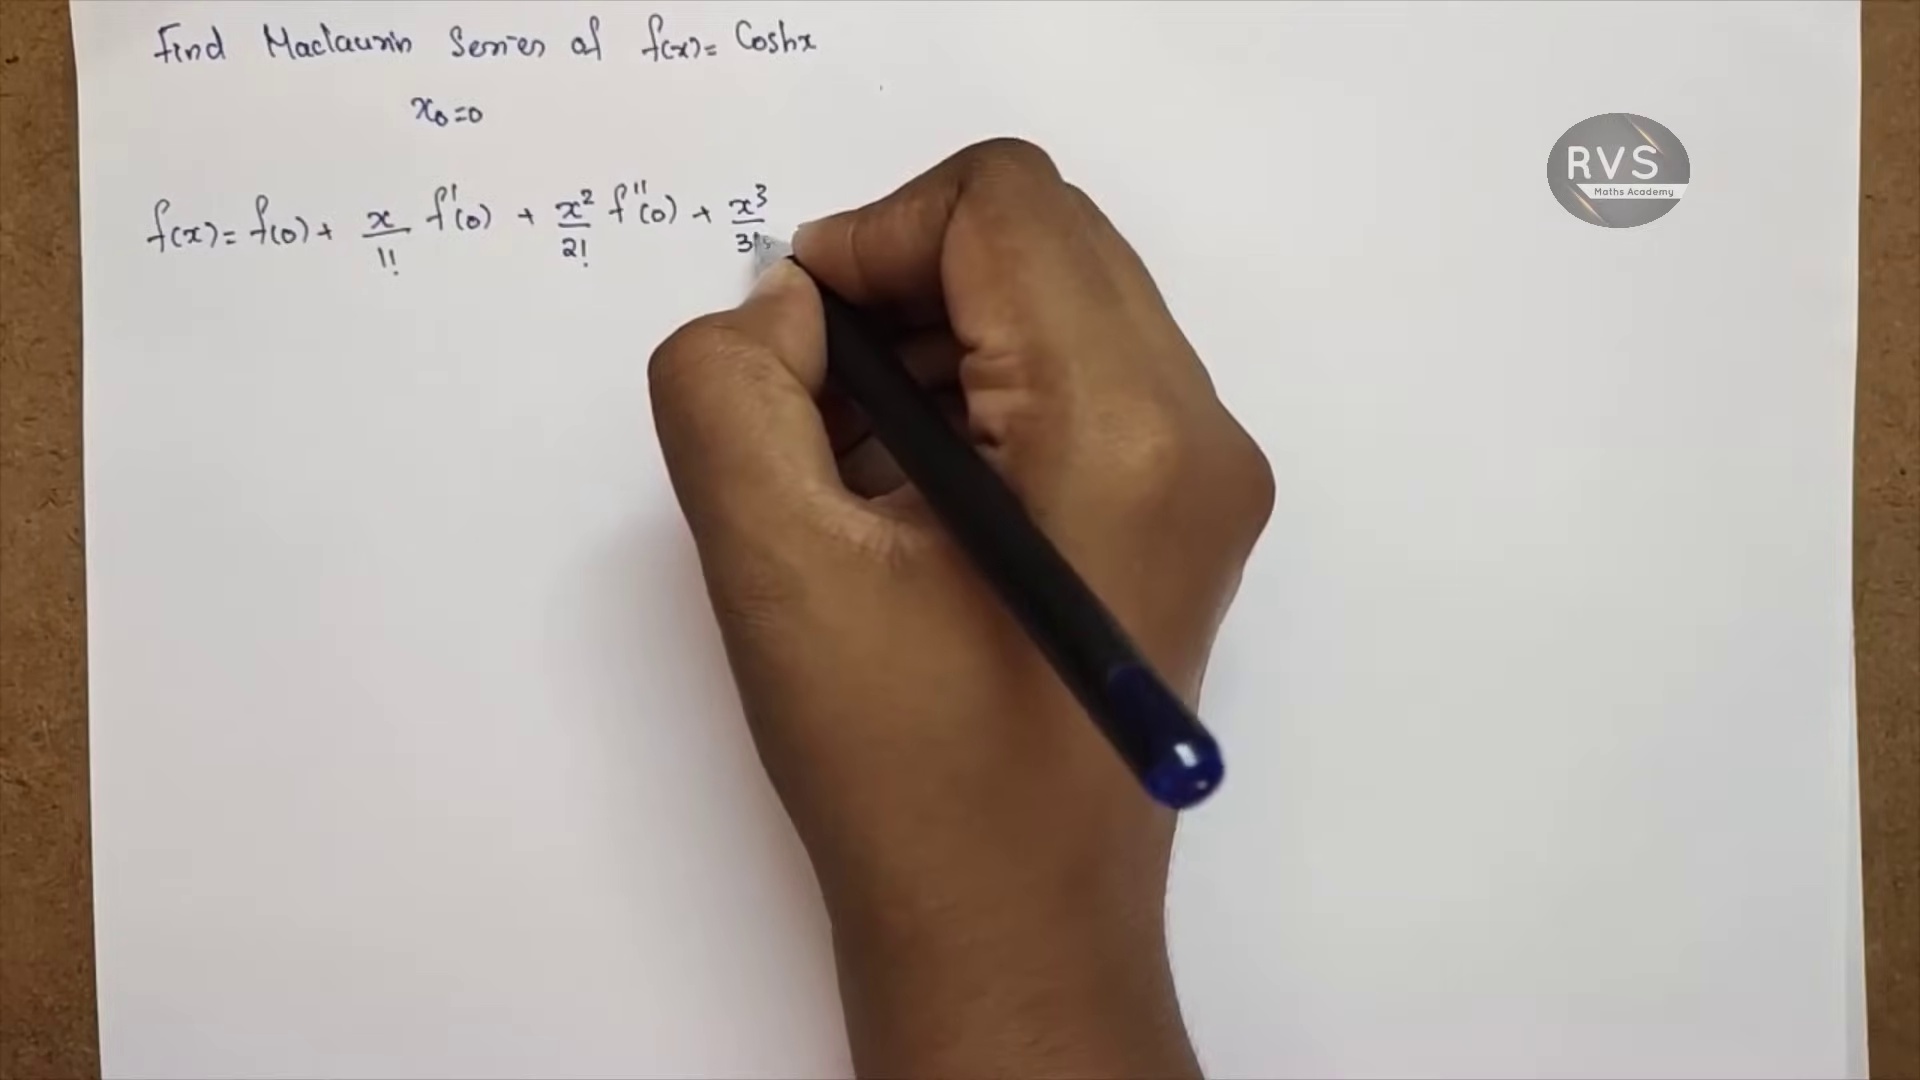 Find Maclaurin Series of f(x) = Coshx
x₀=0
f(x) = f(0) + x/1! f'(0) + x²/2! f''(0) + x³/3!
RVS
Maths Academy